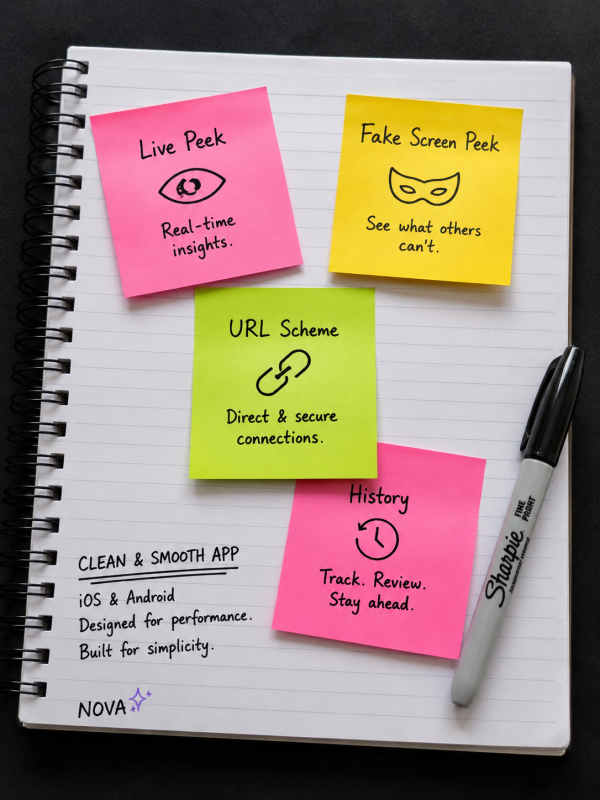 Live Peek
Real-time
insights.
Fake Screen Peek
See what others
can't.
URL Scheme
Direct & secure
connections.
History
Track. Review.
Stay ahead.
CLEAN & SMOOTH APP
iOS & Android
Designed for performance.
Built for simplicity.
NOVA
Sharpie
FINE